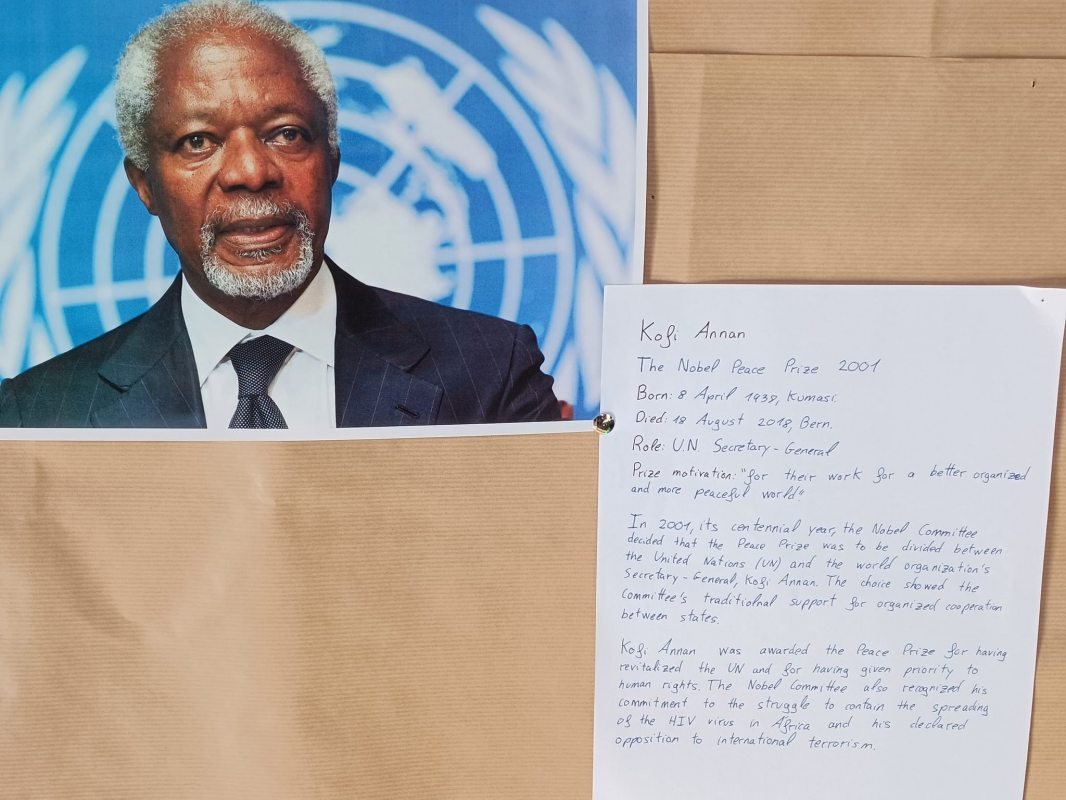 Kofi Annan
The Nobel Peace Prize 2001
Born: 8 April 1938, Kumasi.
Died: 18 August 2018, Bern.
Role: U.N. Secretary-General
Prize motivation: "for their work for a better organized
and more peaceful world"
In 2001, its centennial year, the Nobel Committee
decided that the Peace Prize was to be divided between
the United Nations (UN) and the world organization's
Secretary-General, Kofi Annan. The choice showed the
Committee's traditiolnal support for organized cooperation
between states.
Kofi Annan was awarded the Peace Prize for having
revitalized the UN and for having given priority to
human rights. The Nobel Committee also recognized his
commitment to the struggle to contain the spreading
of the HIV virus in Africa and his declared
opposition to international terrorism.